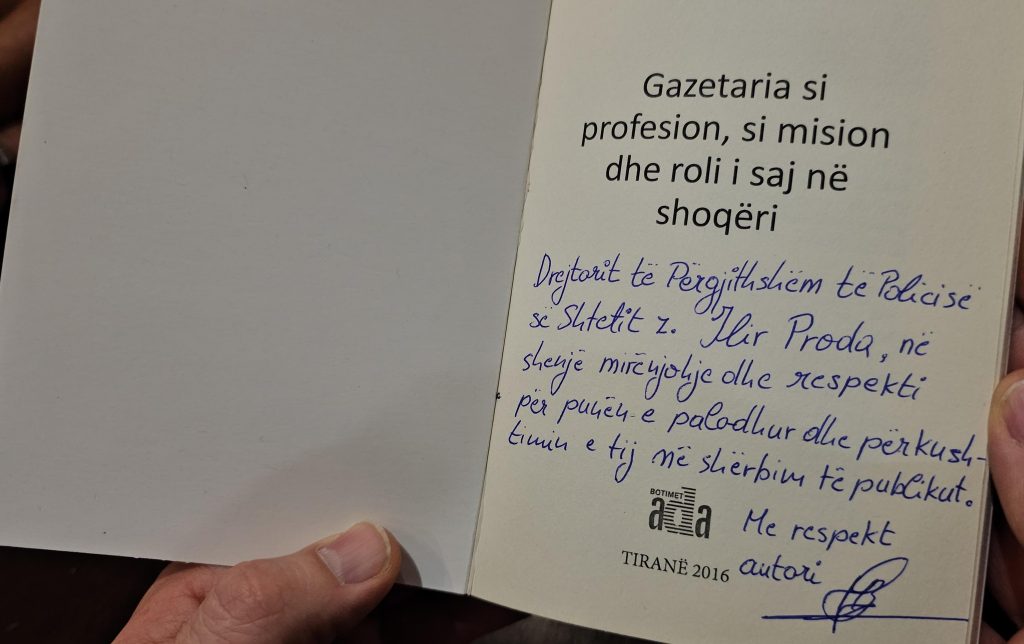 Gazetaria si
profesion, si mision
dhe roli i saj në
shoqëri
Drejtorit të Përgjithshëm të Policisë
së Shtetit z. Ilir Proda, në
shenjë mirënjohje dhe respekti
për punën e palodhur dhe përkush-
timin e tij në shërbim të publikut.
BOTIMET
ada
Me respekt
autori
TIRANË 2016